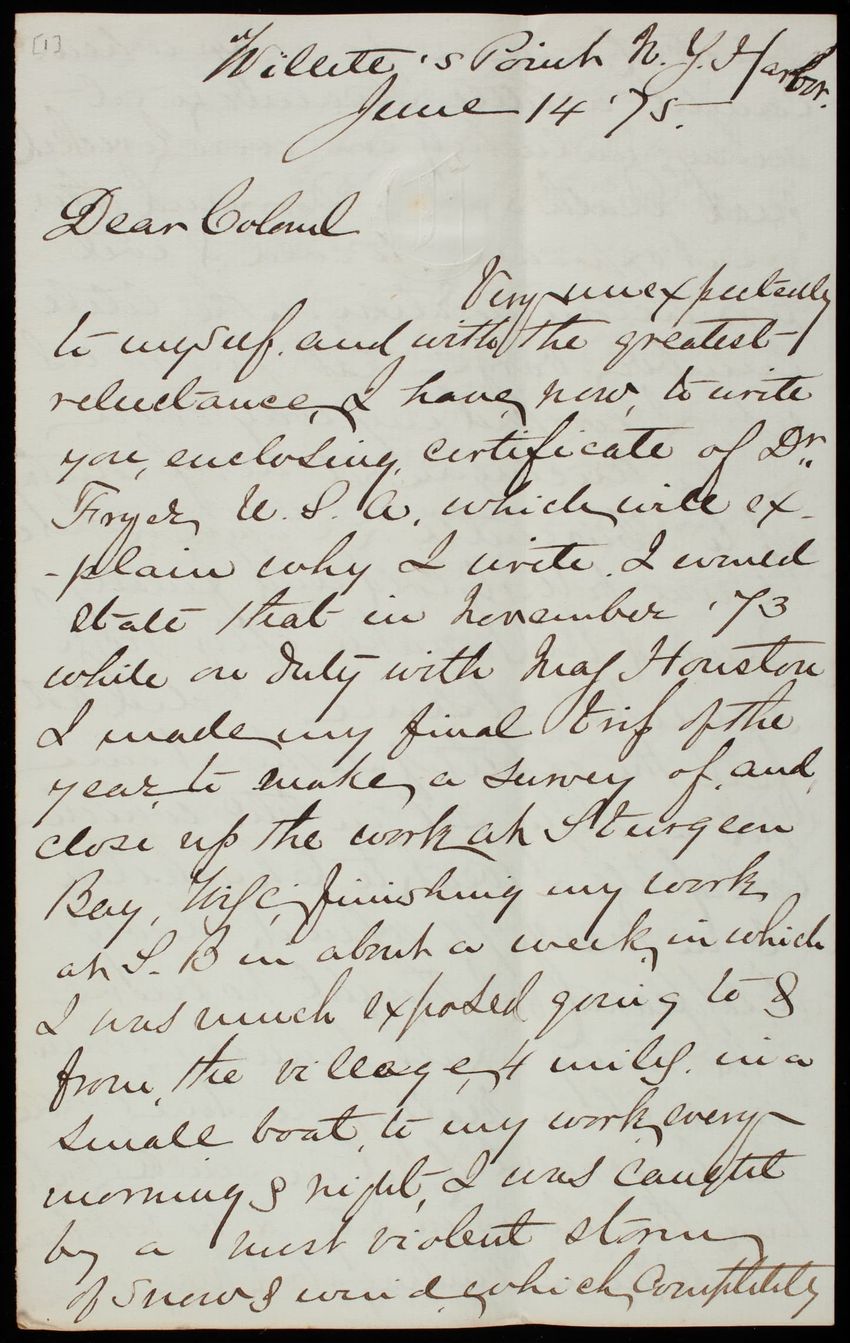 [1]
Willett's Point N. Y. Harbor.
June 14 '75.
Dear Colonel
Very unexpectedly
to myself. and with the greatest
reluctance, I have, now, to write
you, enclosing, certificate of Dr.
Fryer, U. S. A. which will ex-
-plain why I write. I would
state that in November '73
while on duty with Maj Houston
I made my final trip of the
year to make a survey of, and
close up the work at Sturgeon
Bay, Wisc; finishing my work
at S. B in about a week, in which
I was much exposed going to &
from, the village, 4 miles. in a
small boat, to my work, every
morning & night, I was caught
by a most violent storm
of snow & wind, which, completely